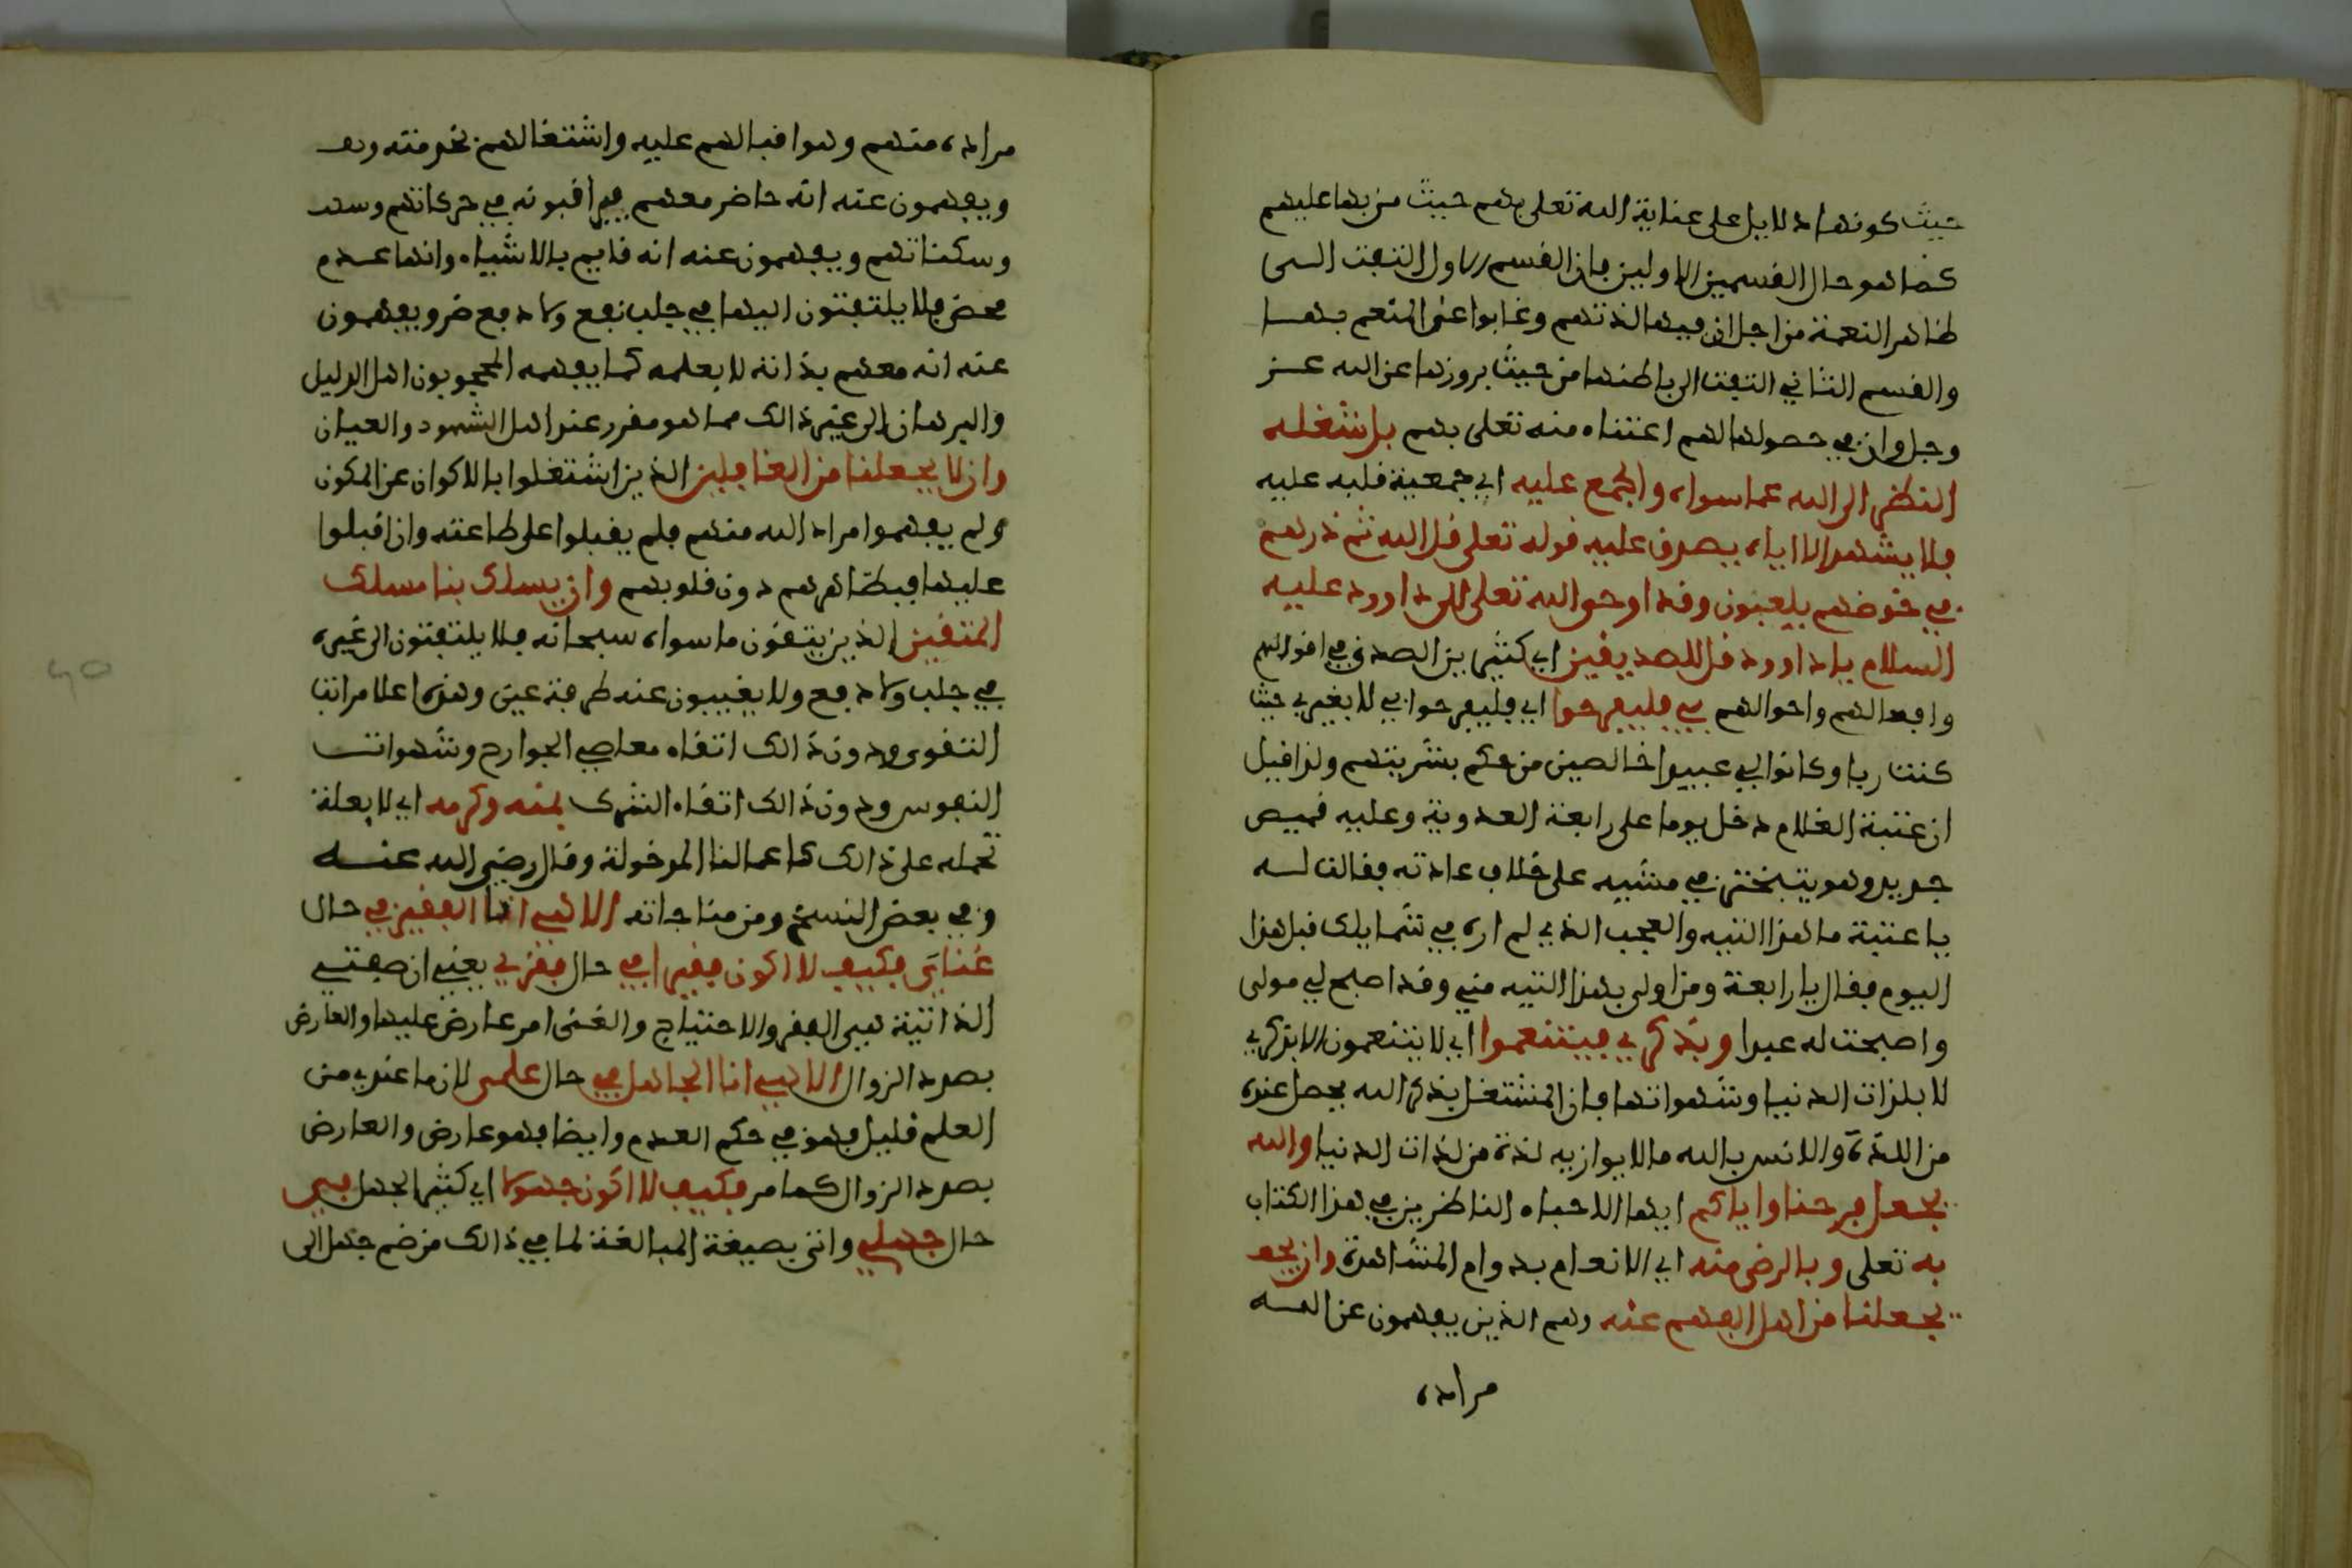 حيث كونها دلايل على عناية الله تعلى بهم حيث من بها عليهم
كما هو حال القسمين الاولين فان القسم الاول التفت الى
ظاهر النعمة من اجل ان فيها لذتهم وغابوا عن المنعم بها
والقسم الثاني التفت الى باطنها من حيث بروزها عن الله عز
وجل وان في حصولها لهم اعتناء منه تعلى بهم بل شغله
النظر الى الله عما سواه والجمع عليه اي جمعية قلبه عليه
فلا يشهد الا اياه يصدق عليه قوله تعلى قل الله ثم ذرهم
في خوضهم يلعبون وقد اوحى الله تعلى الى داوود عليه
السلام يا داوود قل للصديقين اي كثيرين الصدق في اقوالهم
وافعالهم واحوالهم بي فليفرحوا اي فليفرحوا بي لا بغيري حيث
كنت ربا وكانوا لي عبيدا خالصين من حكم بشريتهم ولذا قيل
ان عتبة الغلام دخل يوما على رابعة العدوية وعليه قميص
جديد وهو يتبختر في مشيه على خلاف عادته فقالت له
يا عتبة ما هذا التيه والعجب الذي لم اره في شمايلك قبل هذا
اليوم فقال يا رابعة ومن اولى بهذا التيه مني وقد اصبح لي مولى
واصبحت له عبدا وبذكري فليتنعموا اي لا يتنعمون الا بذكري
لا بلذات الدنيا وشهواتها فان المشتغل بذكر الله يحصل عنده
من اللذة والانس بالله ما لا يوازيه لذة من لذات الدنيا والله
يجعل فرحنا واياكم ايها الاحباء الناظرين في هذا الكتاب
به تعلى وبالرضى منه اي الانعام بدوام المشاهدة وان يجعـ
يجعلنا من اهل الفهم عنه وهم الذين يفهمون عن الله
مراده
مراده منهم وهو اقبالهم عليه واشتغالهم بخدمته ويفـ
ويفهمون عنه انه حاضر معهم فيراقبونه في حركاتهم وسكنـ
وسكناتهم ويفهمون عنه انه قايم بالاشياء وانها عدم
محض فلا يلتفتون اليها في جلب نفع ولا دفع ضر ويفهمون
عنه انه معهم بذاته لا بعلمه كما يفهمه المحجوبون اهل الدليل
والبرهان الى غير ذالك مما هو مقرر عند اهل الشهود والعيان
وان لا يجعلنا من الغافلين الذين اشتغلوا بالاكوان عن المكون
ولم يفهموا مراد الله منهم فلم يقبلوا على طاعته وان اقبلوا
عليها فبظاهرهم دون قلوبهم وان يسلك بنا مسلك
المتقين الذين يتقون ما سواه سبحانه فلا يلتفتون الى غيره
في جلب ولا دفع ولا يغيبون عنه طرفة عين وهذه اعلا مراتب
التقوى ودون ذالك اتقاء معاصي الجوارح وشهوات
النفوس ودون ذالك اتقاء الشرك بمنه وكرمه اي لا بعلة
تحمله على ذالك كاعمالنا المدخولة وقال رضي الله عنه
وفي بعض النسخ ومن مناجاته الاهي انا الفقير في حال
غناي فكيف لا اكون فقيرا في حال فقري يعني ان صفتي
الذاتية هي الفقر والاحتياج والغنى امر عارض عليها والعارض
بصدد الزوال الاهي انا الجاهل في حال علمي لان ما عندي من
العلم قليل فهو في حكم العدم وايضا فهو عارض والعارض
بصدد الزوال كما مر فكيف لا اكون جهولا اي كثير الجهل في
حال جهلي واتى بصيغة المبالغة لما في ذالك من ضم جهل الى